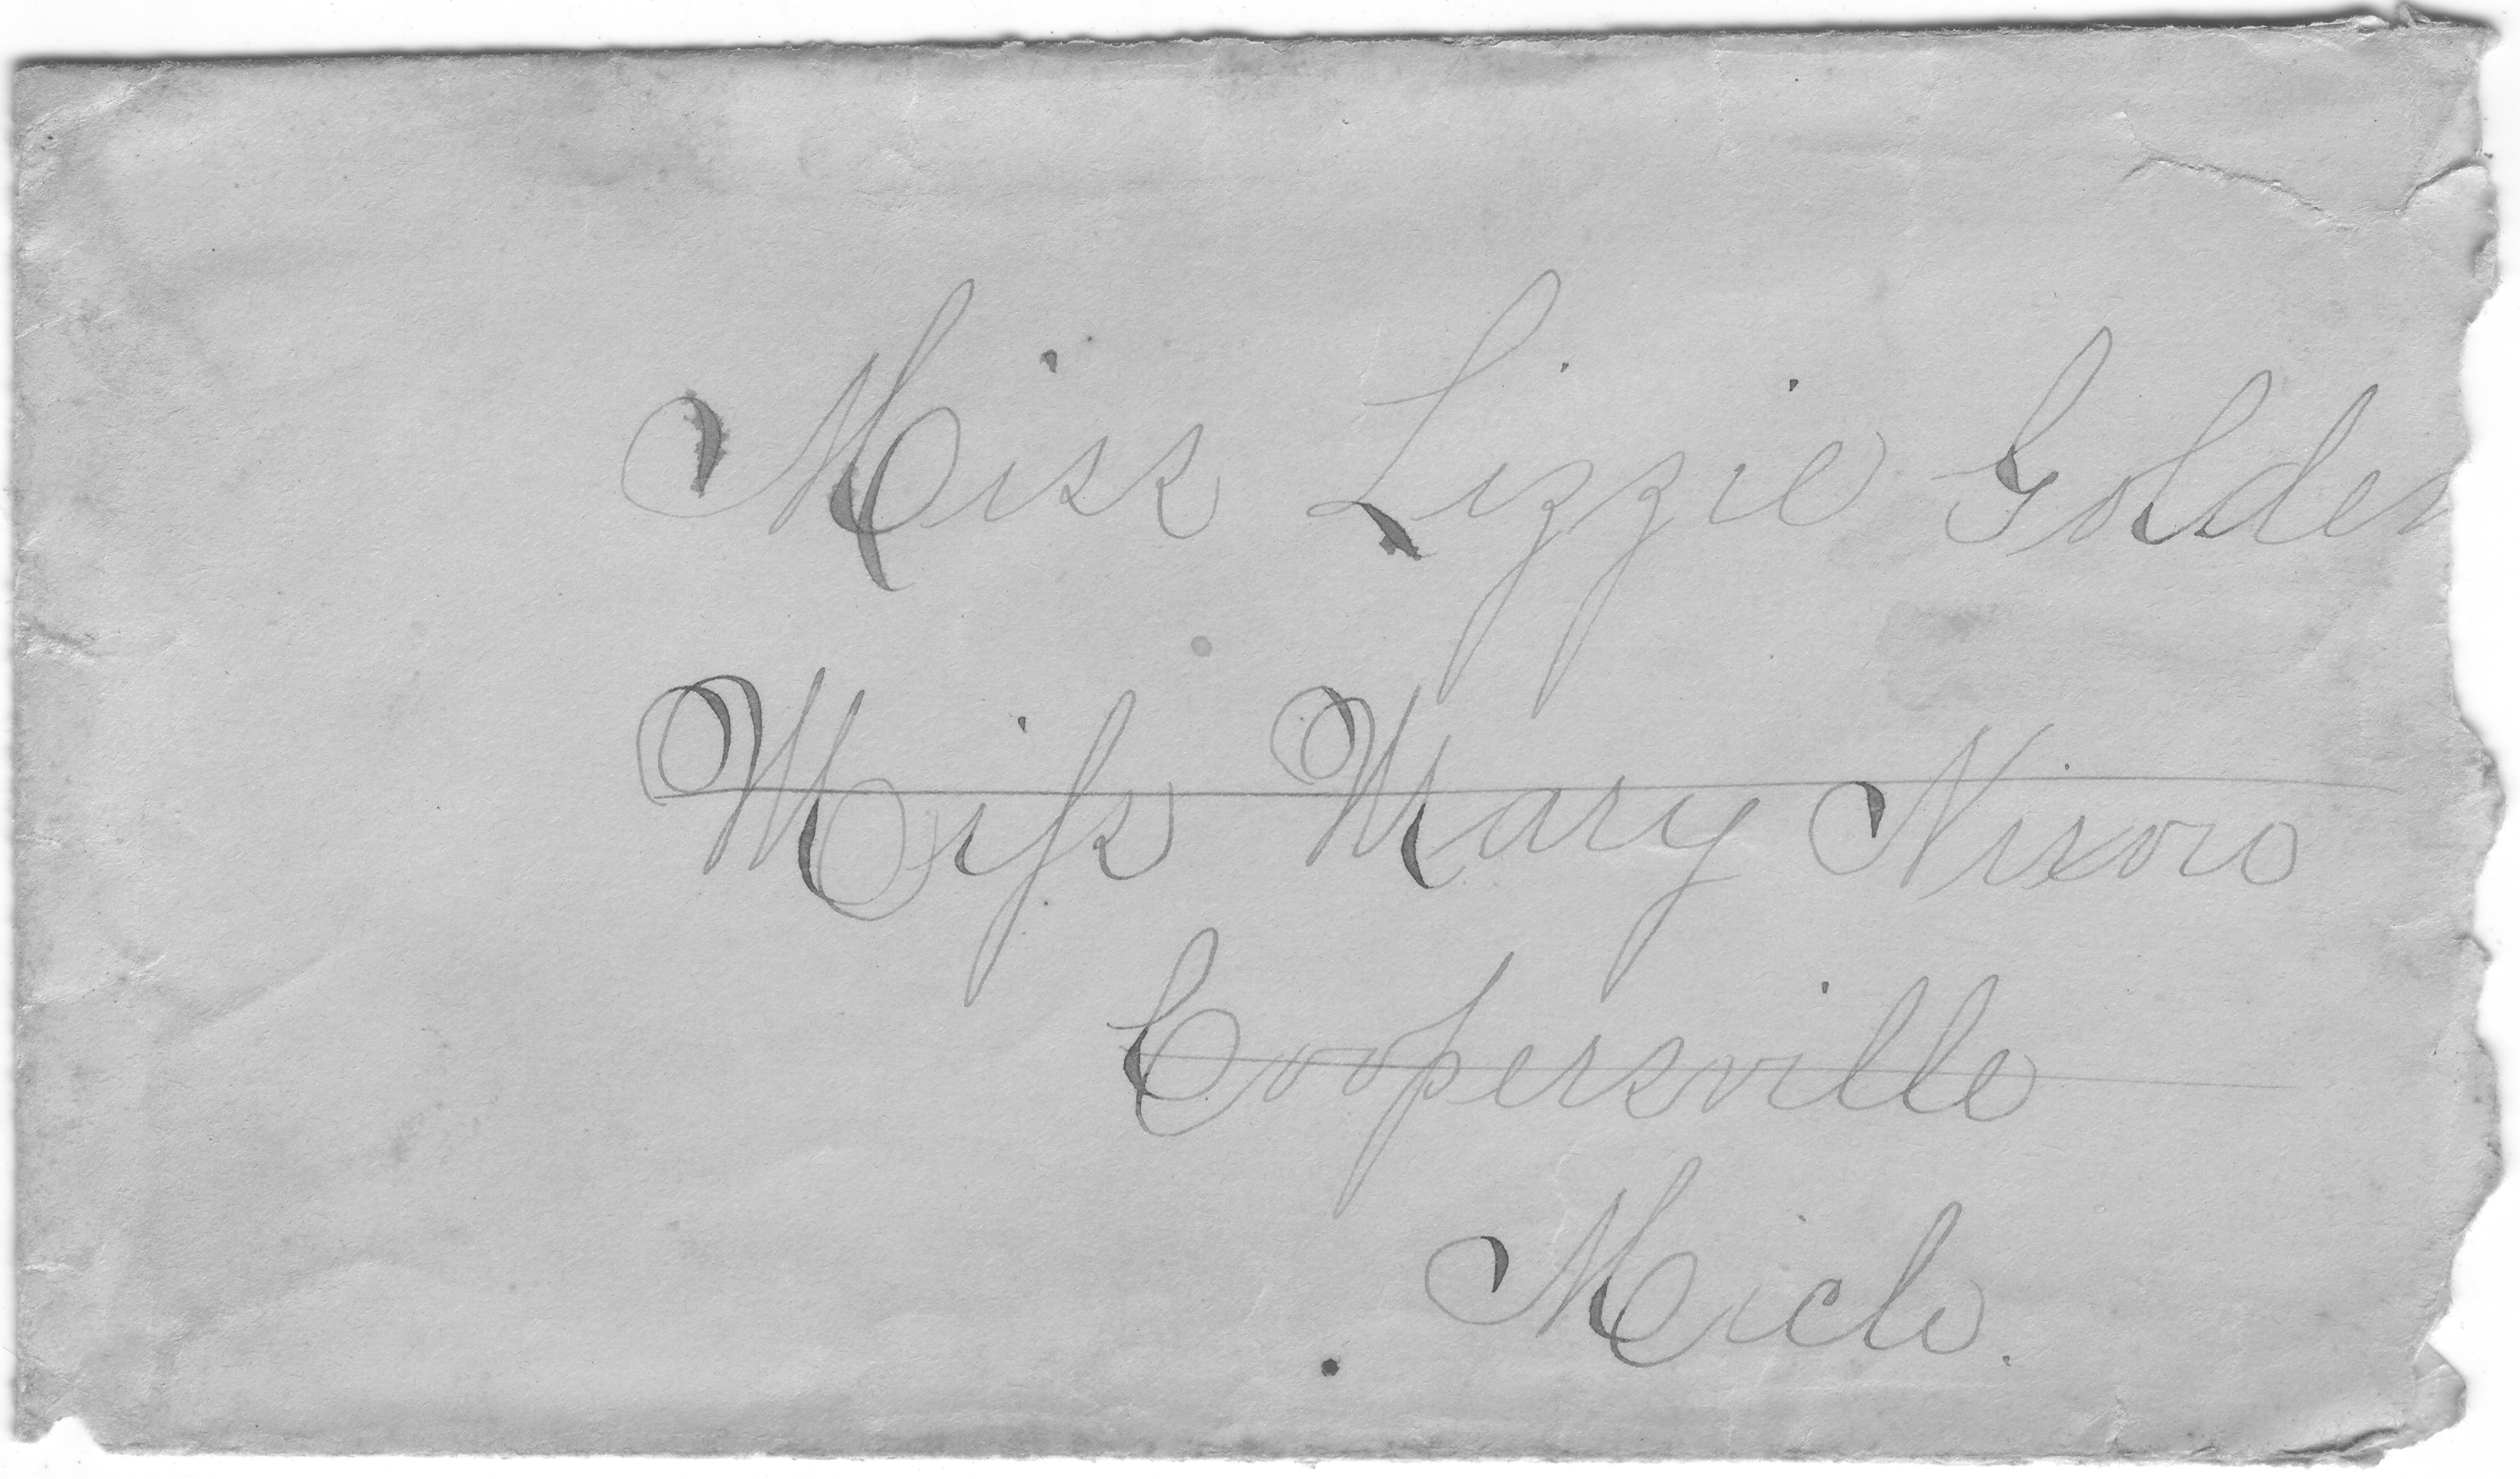 Miss Lizzie Golden
Miſs Mary Nixon
Coopersville
Mich.